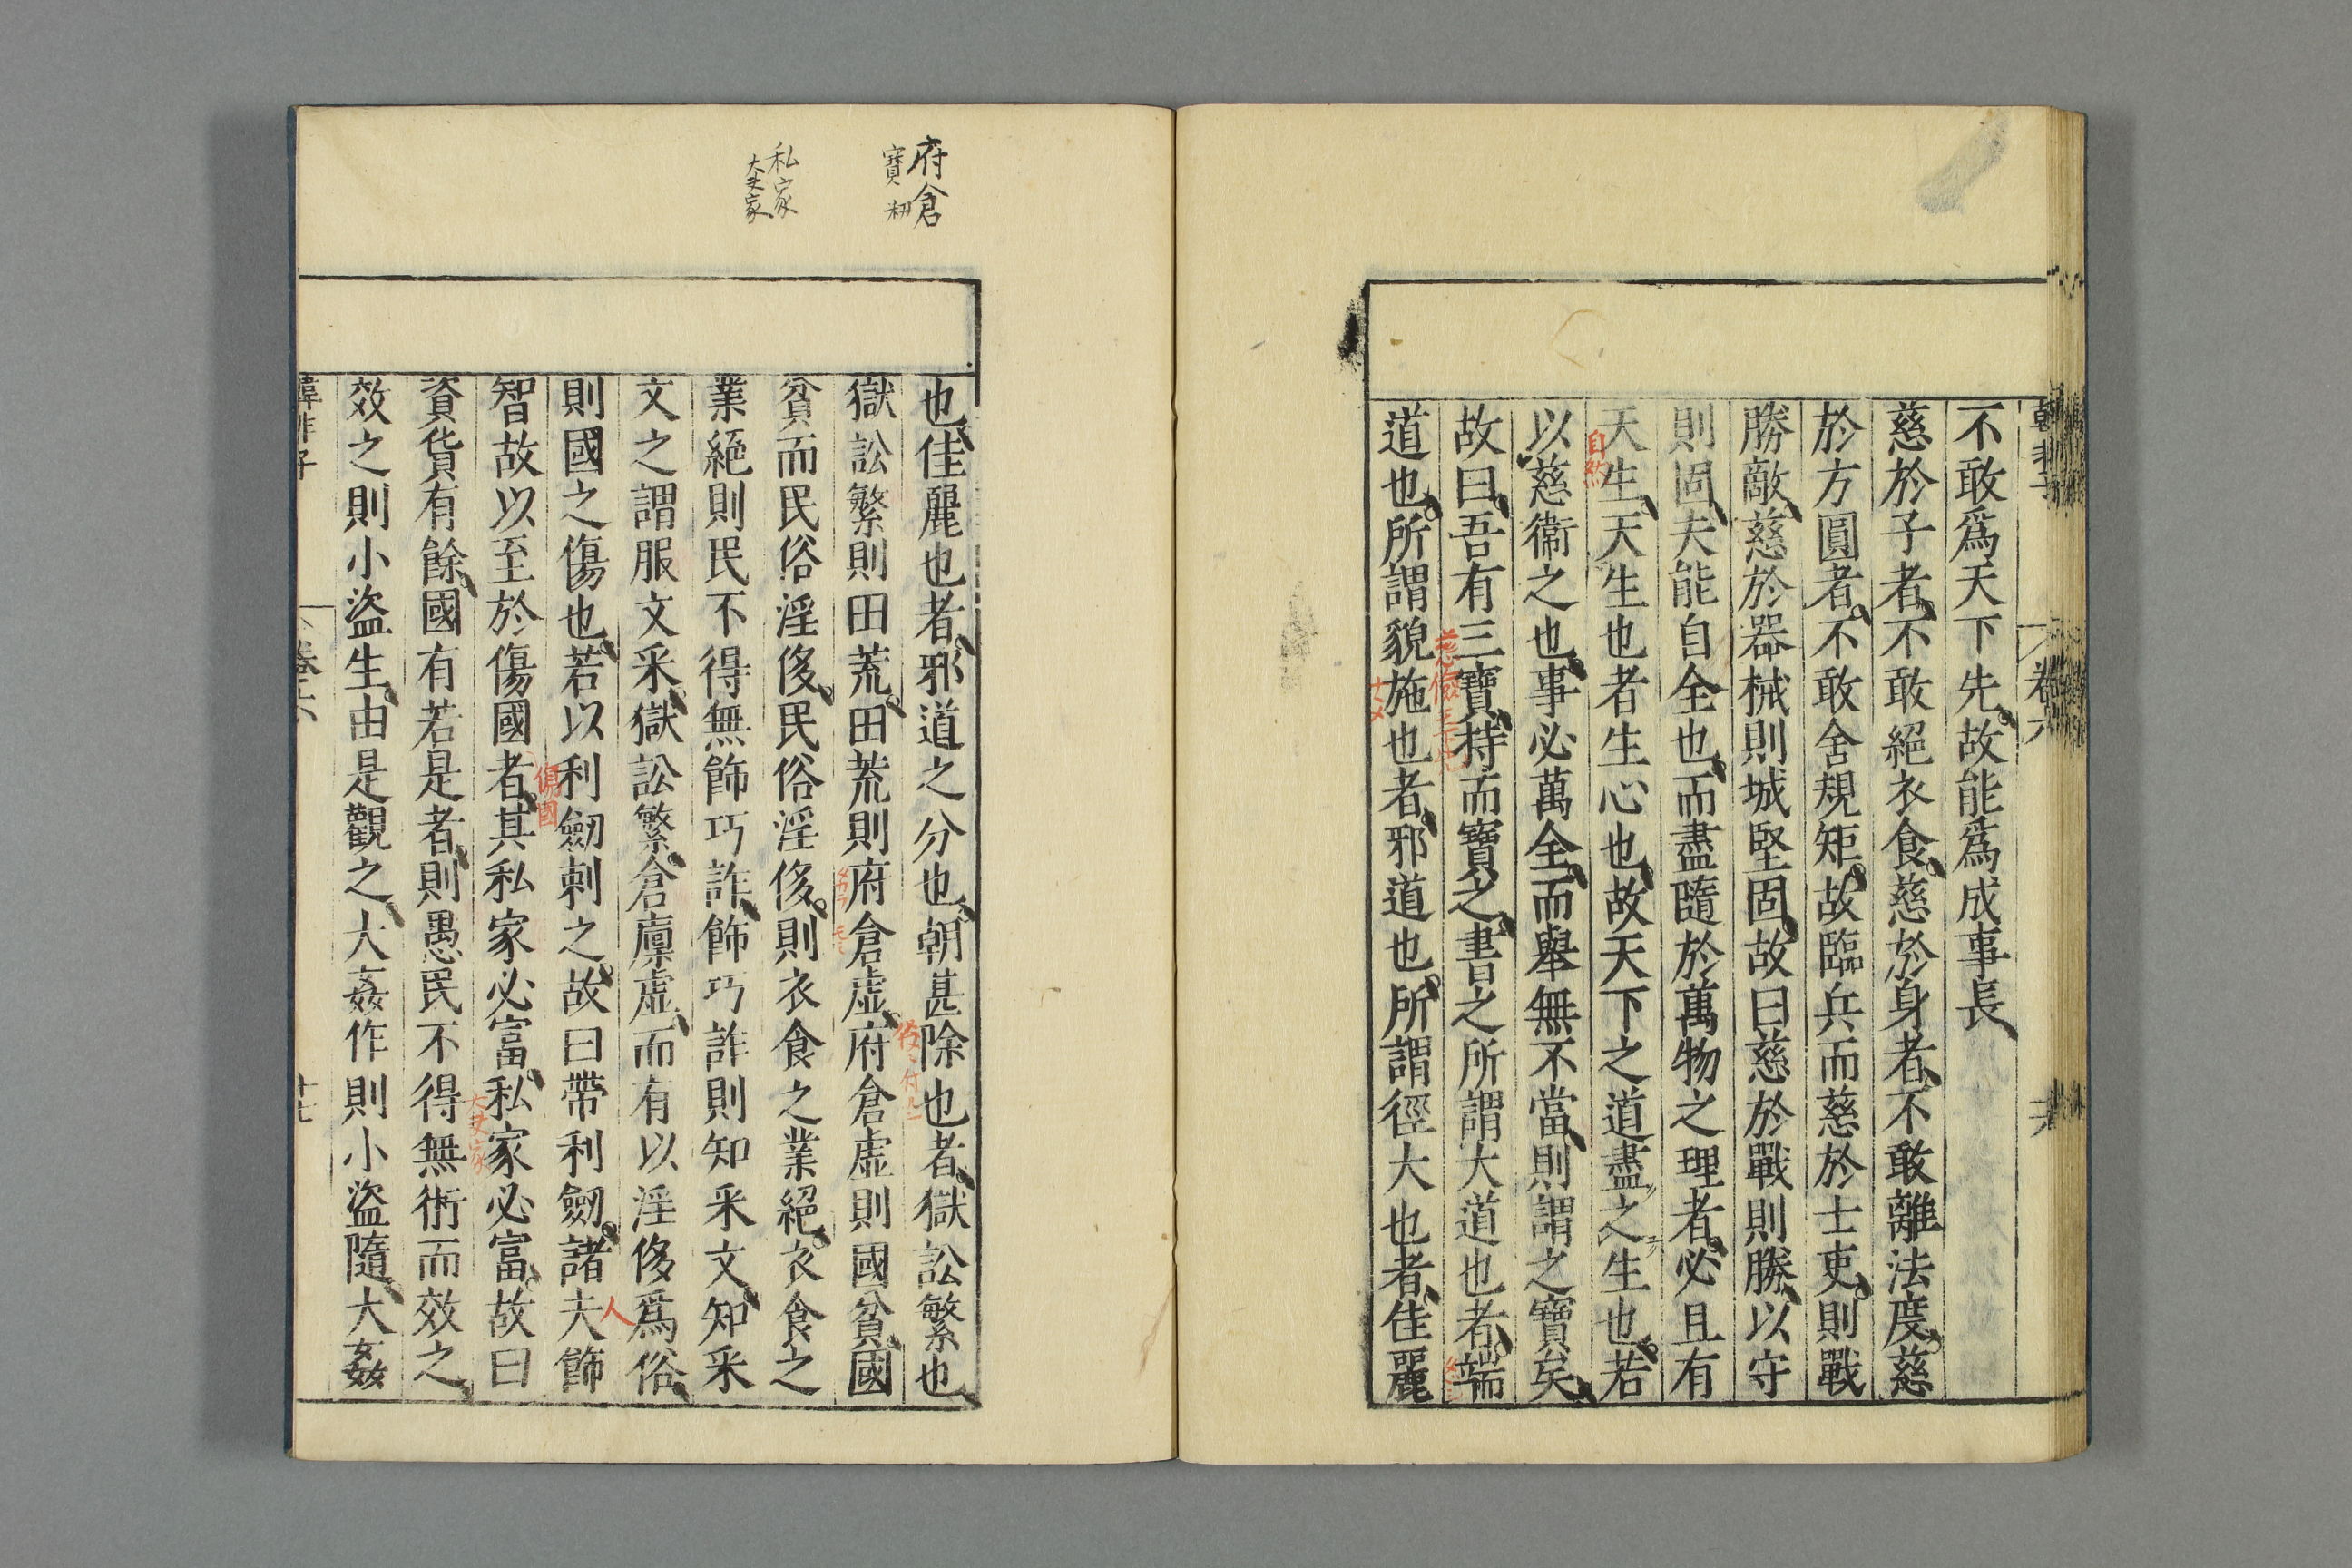 不敢爲天下先故能爲成事長
慈於子者不敢絕衣食慈於身者不敢離法度慈
於方圓者不敢舍規矩故臨兵而慈於士吏則戰
勝敵慈於器械則城堅固故曰慈於戰則勝以守
則固夫能自全也而盡隨於萬物之理者必且有
天生天生也者生心也故天下之道盡之生也若
自然
以慈衞之也事必萬全而舉無不當則謂之寶矣
故曰吾有三寶持而寶之書之所謂大道也者端
道也所謂貌施也者邪道也所謂徑大也者佳麗
府倉
寶 籾
私家
大夫家
也佳麗也者邪道之分也朝甚除也者獄訟繁也
獄訟繁則田荒田荒則府倉虛府倉虛則國貧國
貧而民俗淫侈民俗淫侈則衣食之業絕衣食之
業絕則民不得無飾巧詐飾巧詐則知采文知采
文之謂服文采獄訟繁倉廩虛而有以淫侈爲俗
則國之傷也若以利劒刺之故曰帶利劒諸夫飾
人
傷國
智故以至於傷國者其私家必富私家必富故曰
大夫家
資貨有餘國有若是者則愚民不得無術而效之
效之則小盜生由是觀之大姦作則小盜隨大姦
韓非子 卷六 十七